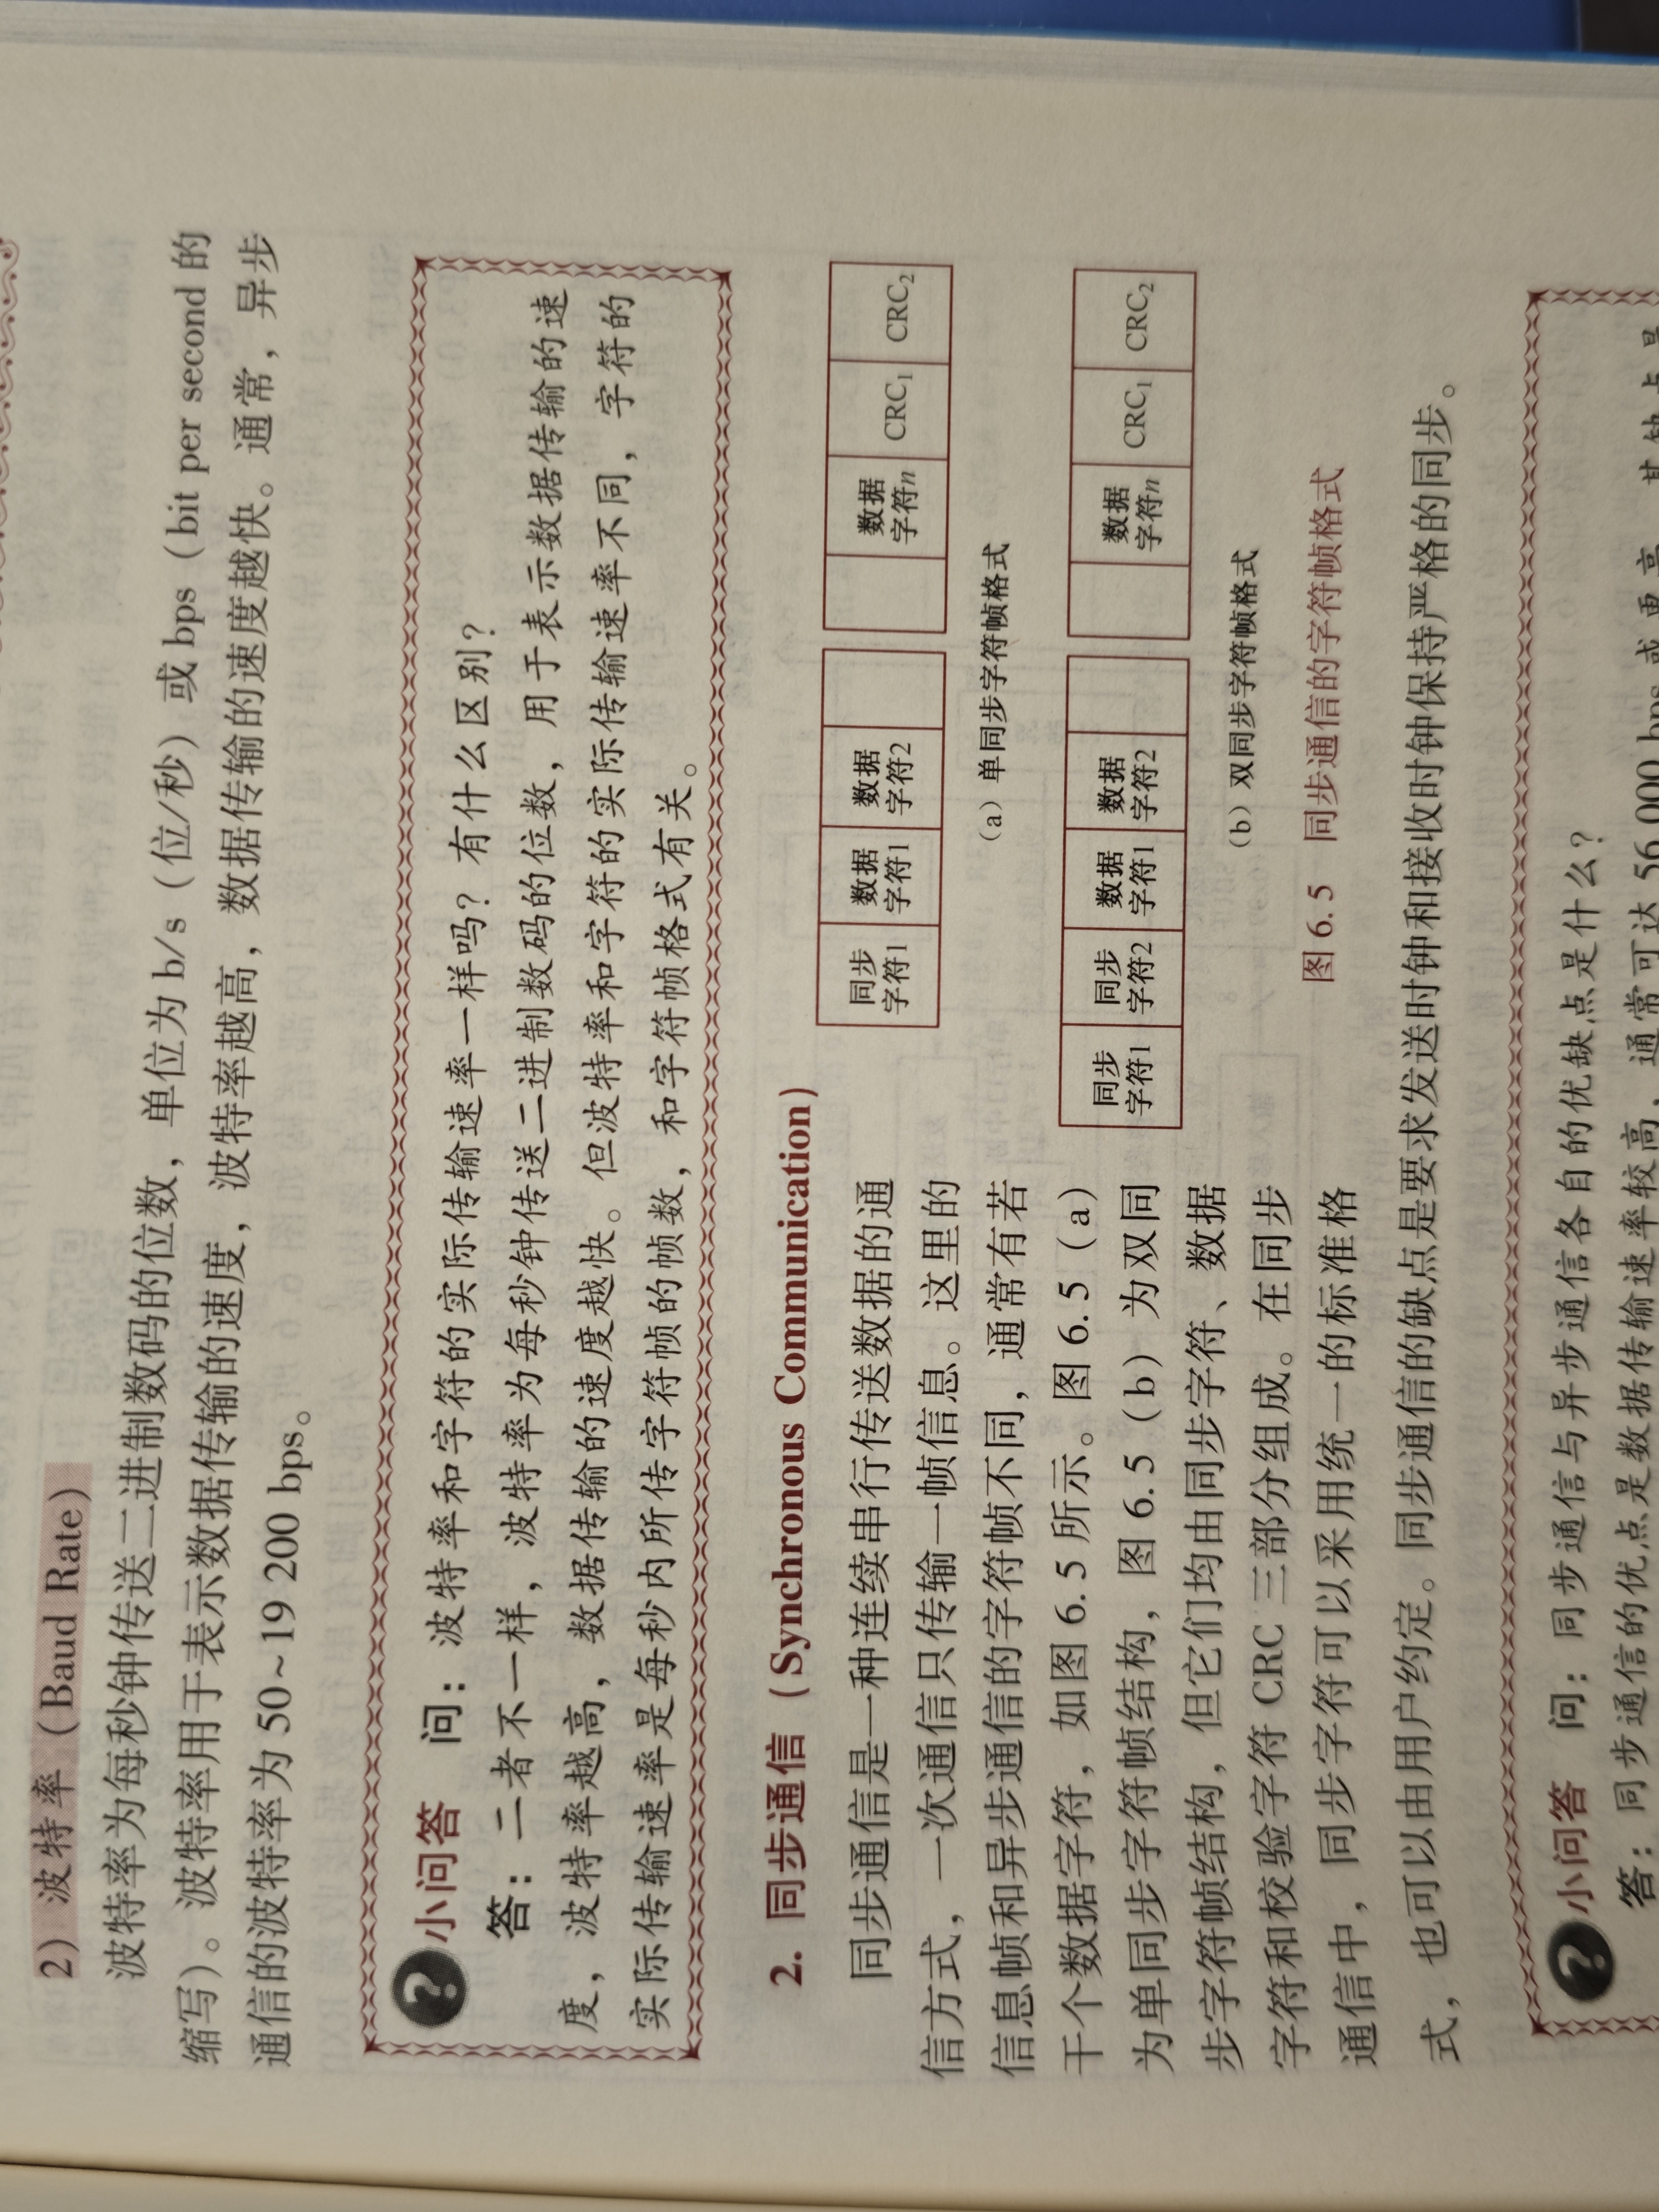 2) 波特率（Baud Rate）
波特率为每秒钟传送二进制数码的位数，单位为 b/s（位/秒）或 bps（bit per second 的
缩写）。波特率用于表示数据传输的速度，波特率越高，数据传输的速度越快。通常，异步
通信的波特率为 50~19 200 bps。
? 小问答 问：波特率和字符的实际传输速率一样吗？有什么区别？
答：二者不一样，波特率为每秒钟传送二进制数码的位数，用于表示数据传输的速
度，波特率越高，数据传输的速度越快。但波特率和字符的实际传输速率不同，字符的
实际传输速率是每秒内所传字符帧的帧数，和字符帧格式有关。
2. 同步通信（Synchronous Communication）
同步通信是一种连续串行传送数据的通
信方式，一次通信只传输一帧信息。这里的
信息帧和异步通信的字符帧不同，通常有若
干个数据字符，如图 6.5 所示。图 6.5（a）
为单同步字符帧结构，图 6.5（b）为双同
步字符帧结构，但它们均由同步字符、数据
字符和校验字符 CRC 三部分组成。在同步
通信中，同步字符可以采用统一的标准格
同步
字符1
数据
字符1
数据
字符2
数据
字符n
CRC₁
CRC₂
（a）单同步字符帧格式
同步
字符1
同步
字符2
数据
字符1
数据
字符2
数据
字符n
CRC₁
CRC₂
（b）双同步字符帧格式
图 6.5 同步通信的字符帧格式
式，也可以由用户约定。同步通信的缺点是要求发送时钟和接收时钟保持严格的同步。
? 小问答 问：同步通信与异步通信各自的优缺点是什么？
答：同步通信的优点是数据传输速率较高，通常可达 56 000 bps 或更高